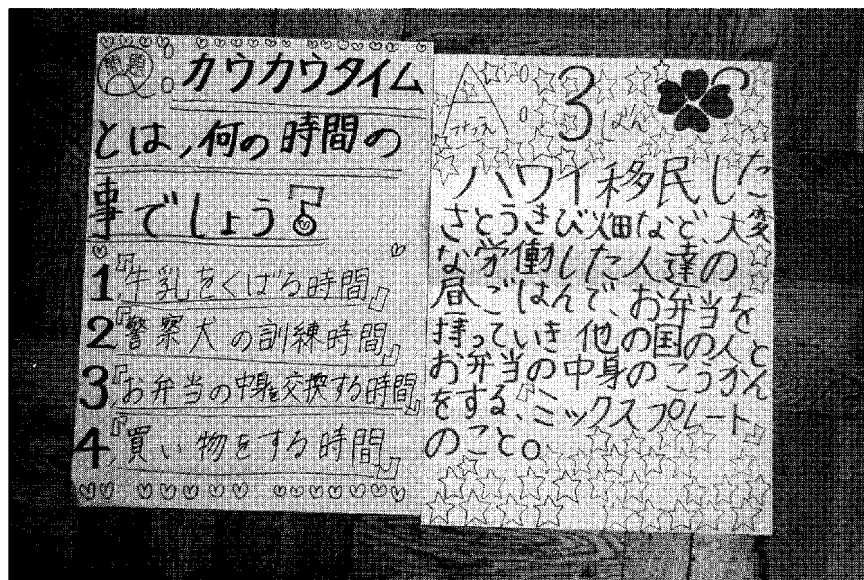 問題 カウカウタイム
とは、何の時間の
事でしょう?
1『牛乳をくばる時間』
2『警察犬の訓練時間』
3『お弁当の中身を交換する時間』
4『買い物をする時間』
A 3ばん
ハワイ移民した
さとうきび畑など、大変
な労働した人達の
昼ごはんで、お弁当を
持っていき他の国の人と
お弁当の中身のこうかん
をする、『ミックスプレート』
のこと。